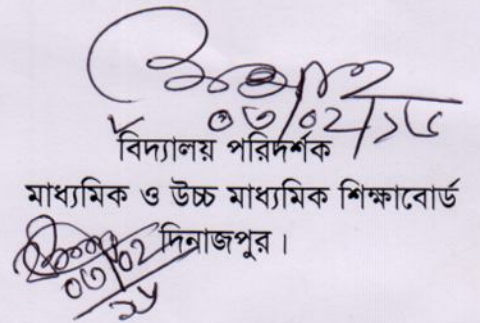 ০৩/০২/১৮
বিদ্যালয় পরিদর্শক
মাধ্যমিক ও উচ্চ মাধ্যমিক শিক্ষাবোর্ড
দিনাজপুর।
০৩/০২